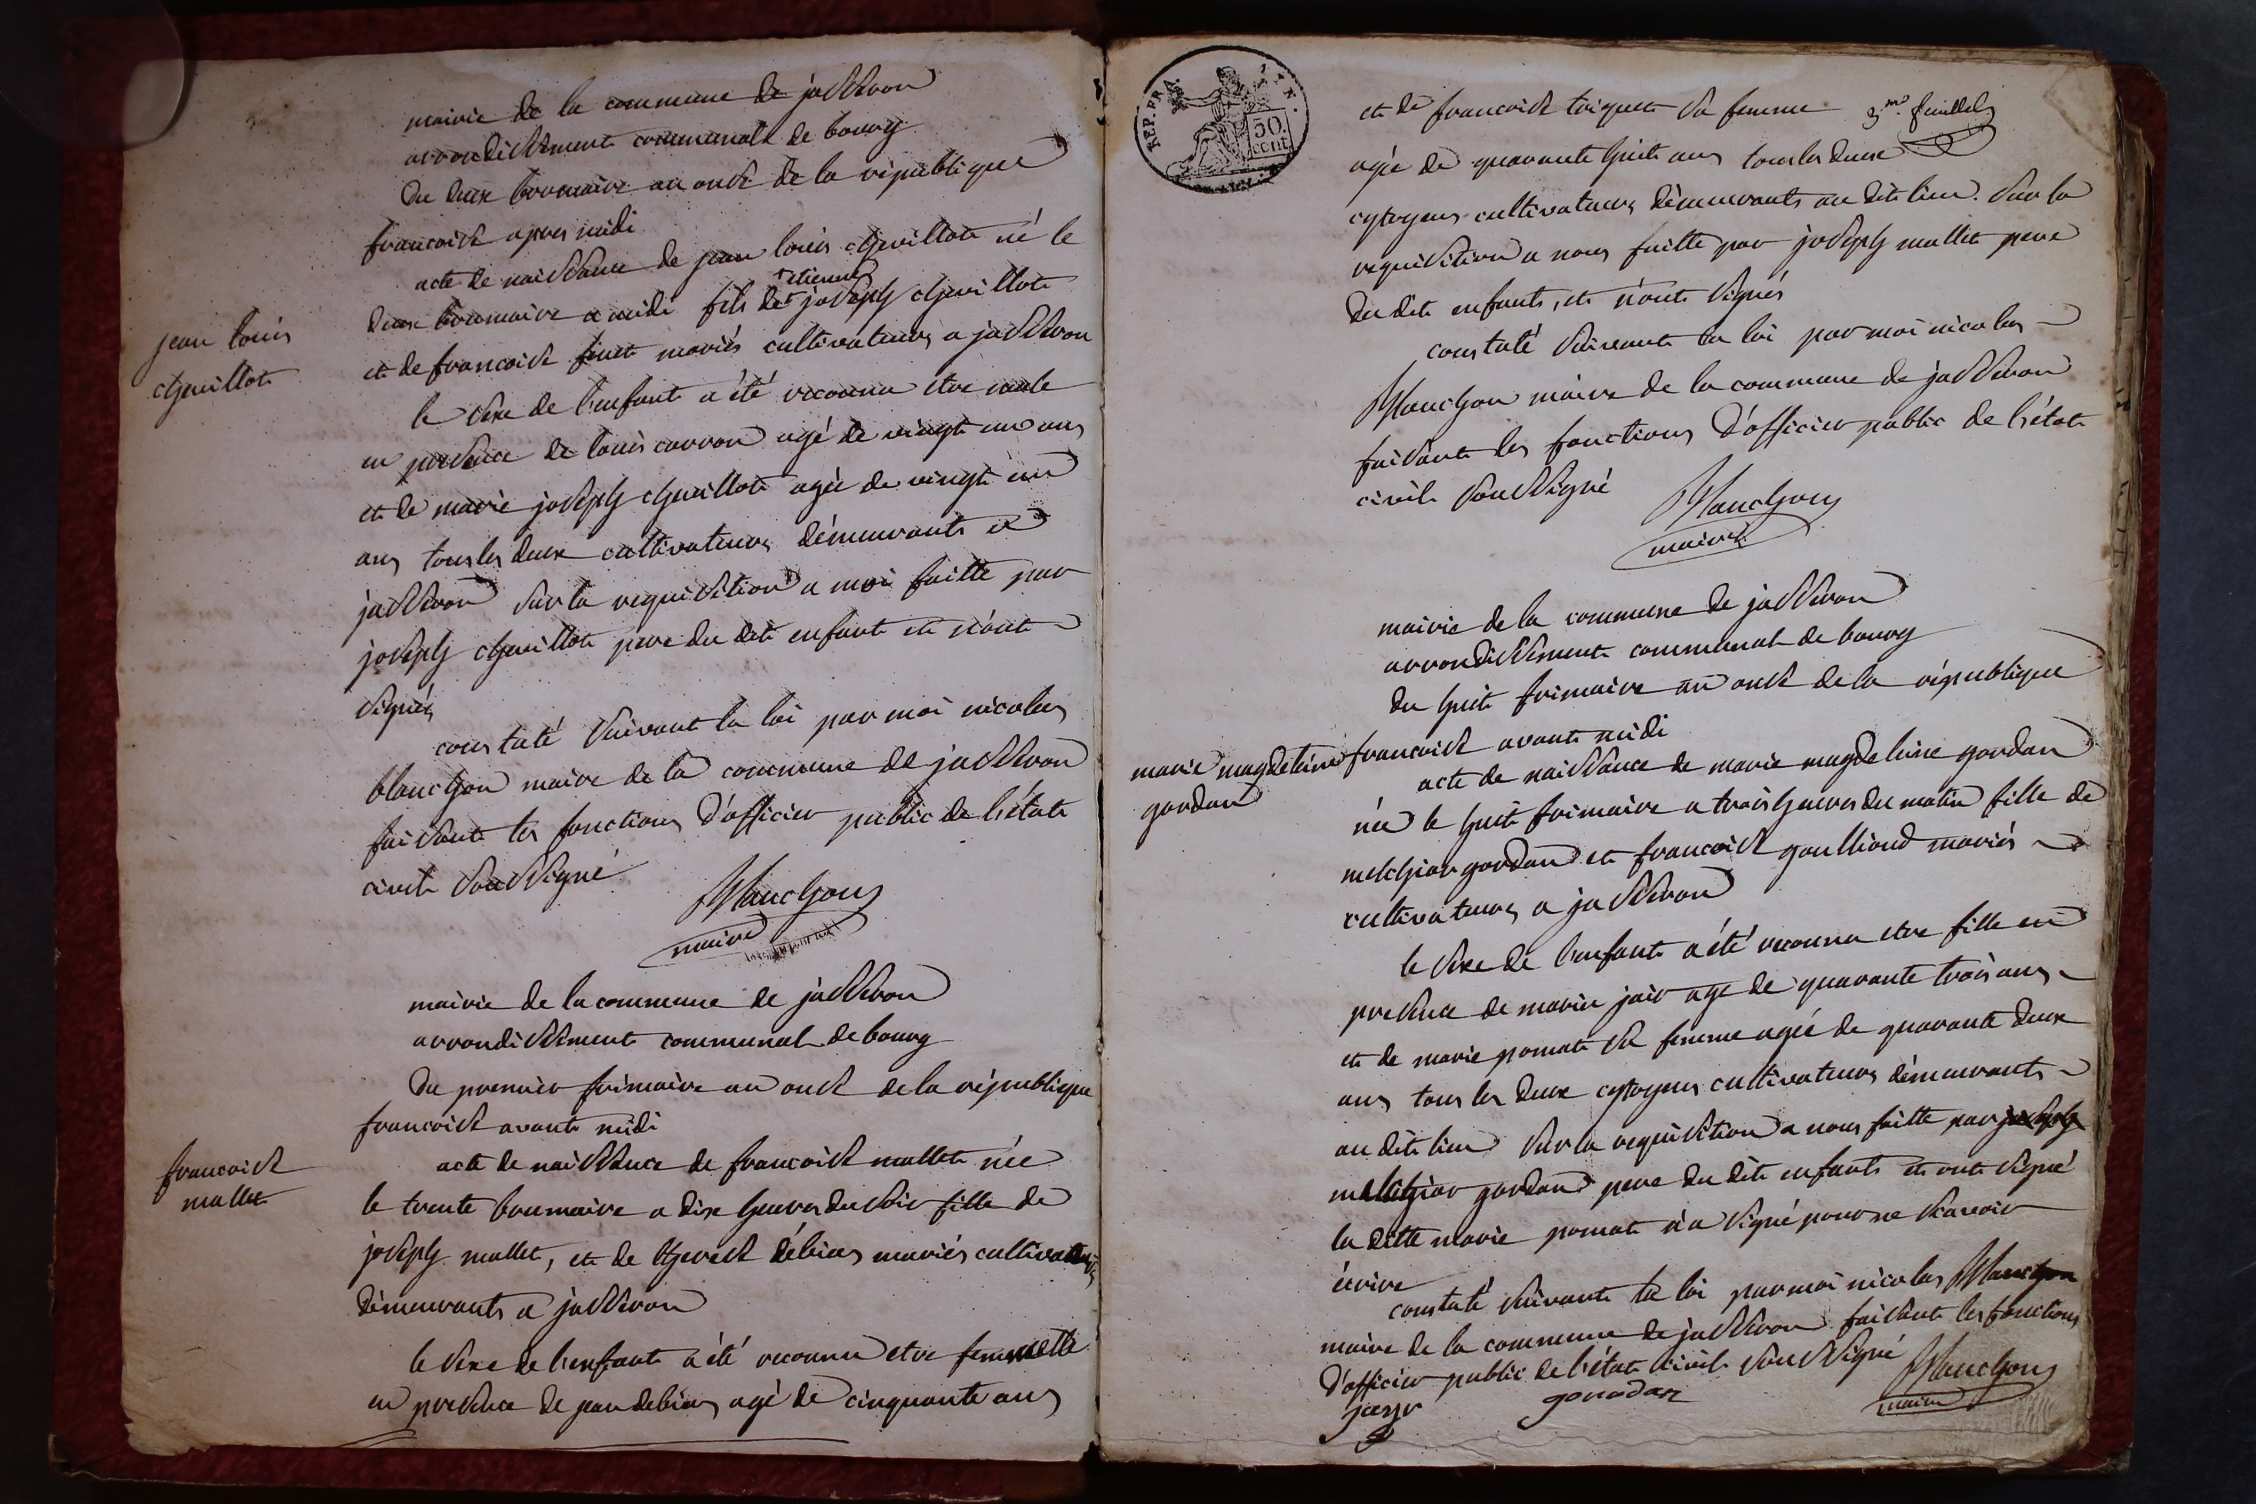 mairie de la commune de jasseron
arrondissement communal de bourg
du deux brumaire an onze de la république
francoise apres midi
acte de naissance de jean louis chevillot né le
etienne
deux brumaire a midi fils de joseph chevillot
et de francoise finet mariés cultivateurs a jasseron
jean louis
chevillot
le sexe de l'enfant a été reconnu etre male
en presence de louis carron agé de vingt un ans
et de marie joseph chevillot agée de vingt un
ans tous les deux cultivateurs démeurants a
jasseron sur la requisition a moi faitte par
joseph chevillot pere du dit enfant et n'ont
signés
constaté suivant la loi par moi nicolas
blanchon maire de la commune de jasseron
faisant les fonctions d'officier public de l'état
civil soussigné
Blanchon
maire
mairie de la commune de jasseron
arrondissement communal de bourg
du premier frimaire an onze de la république
francoise avant midi
francoise
mallet
acte de naissance de francoise mallet née
le trente brumaire a dix heures du soir fille de
joseph mallet, et de therese débias mariés cultivateurs
démeurants a jasseron
le sexe de l'enfant a été reconnu etre femmelle
en presence de jean debias agé de cinquante ans
REP. FRA.
50.
cent
et de francoise triquet sa femme 3me. feuillet
agée de quarante huit ans tous les deux
cytoyens cultivateurs démeurants au dit lieu. sur la
requisition a nous faitte par joseph mallet pere
du dit enfants, et n'ont signés
constaté suivant la loi par moi nicolas
Blanchon maire de la commune de jasseron
faisant les fonctions d'officier public de l'état
civil soussigné
Blanchon
maire
mairie de la commune de jasseron
arrondissement communal de bourg
du huit frimaire an onze de la république
francoise avant midi
marie magdeleine
gordan
acte de naissance de marie magdeleine gordan
née le huit frimaire a trois heures du matin fille de
melchior gordan et francoise goulliond mariés
cultivateurs a jasseron
le sexe de l'enfant a été reconnu etre fille en
presence de marin jair agé de quarante trois ans
et de marie pomat sa femme agée de quarante deux
ans tous les deux cytoyens cultivateurs démeurants
au dit lieu sur la requisition a nous faitte par joseph
melchior gordan pere du dit enfants et ont signé
la ditte marie pomat n'a signé pour ne scavoir
écrire
constaté suivant la loi par moi nicolas Blanchon
maire de la commune de jasseron faisant les fonctions
d'officier public de l'état civil soussigné
Blanchon
maire